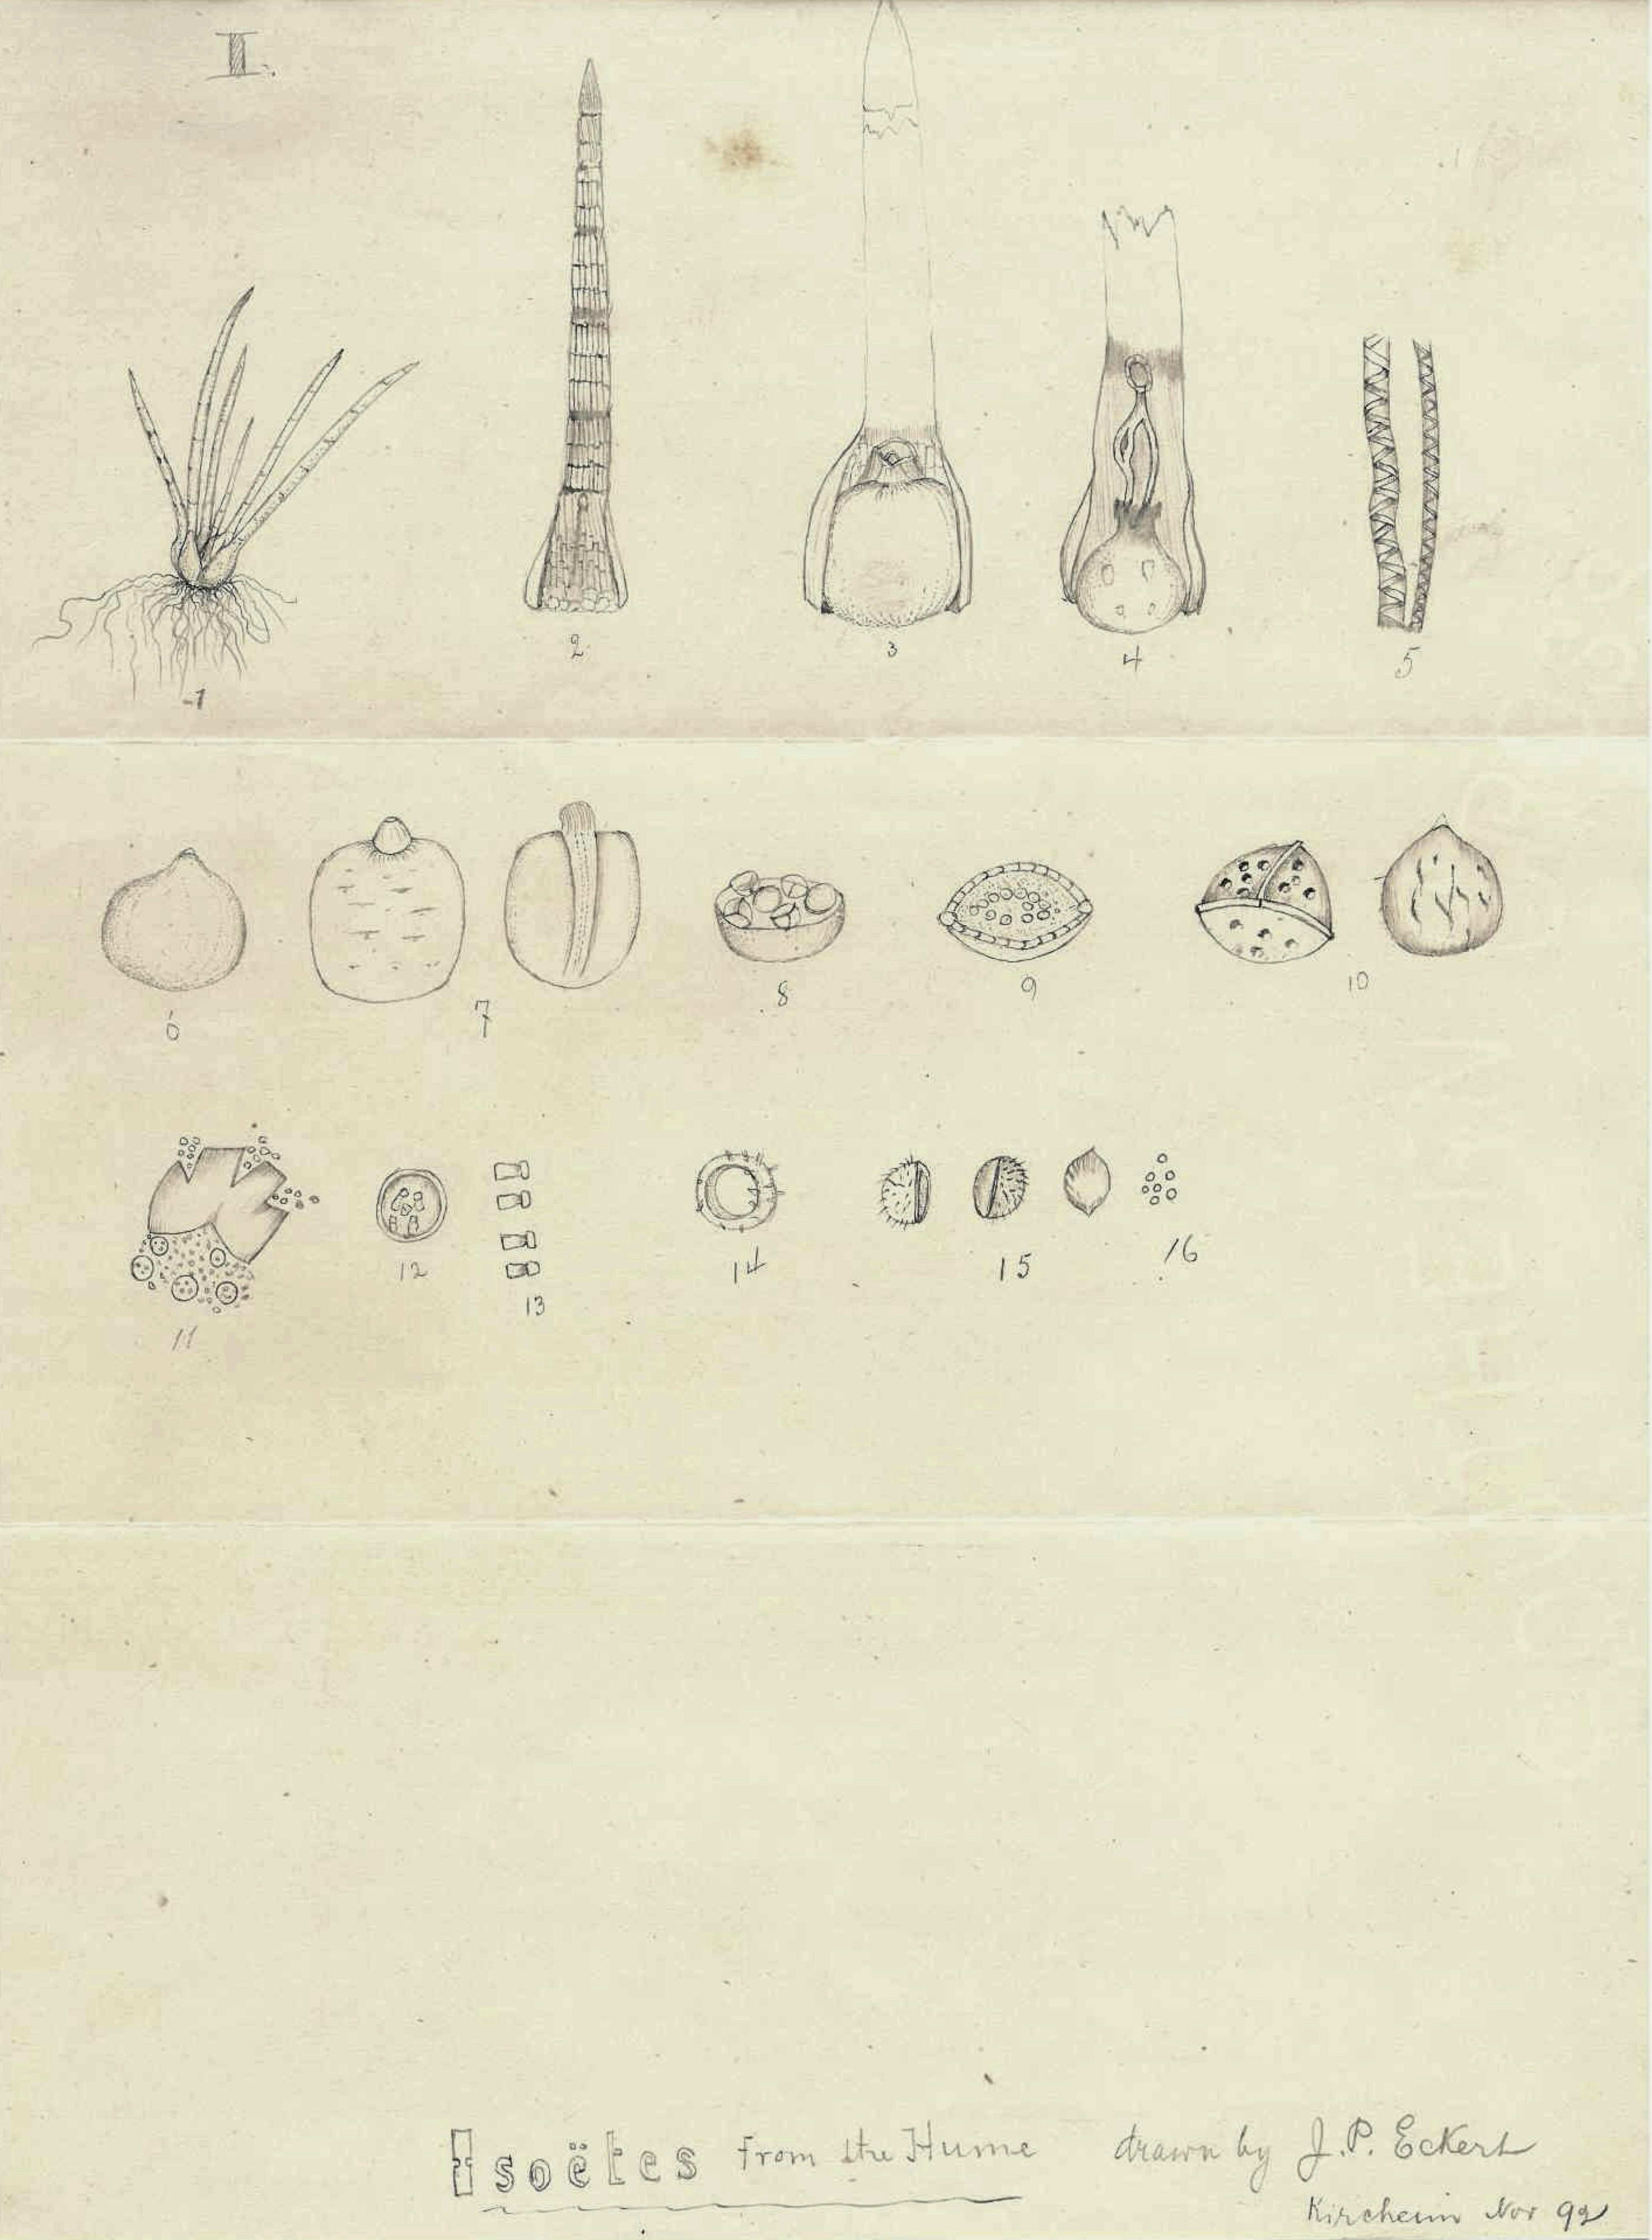 II.
2
3
4
5
1
6
7
8
9
10
11
12
13
14
15
16
Isoëtes from the Hume drawn by J. P. Eckert
Kircheim Nov 92